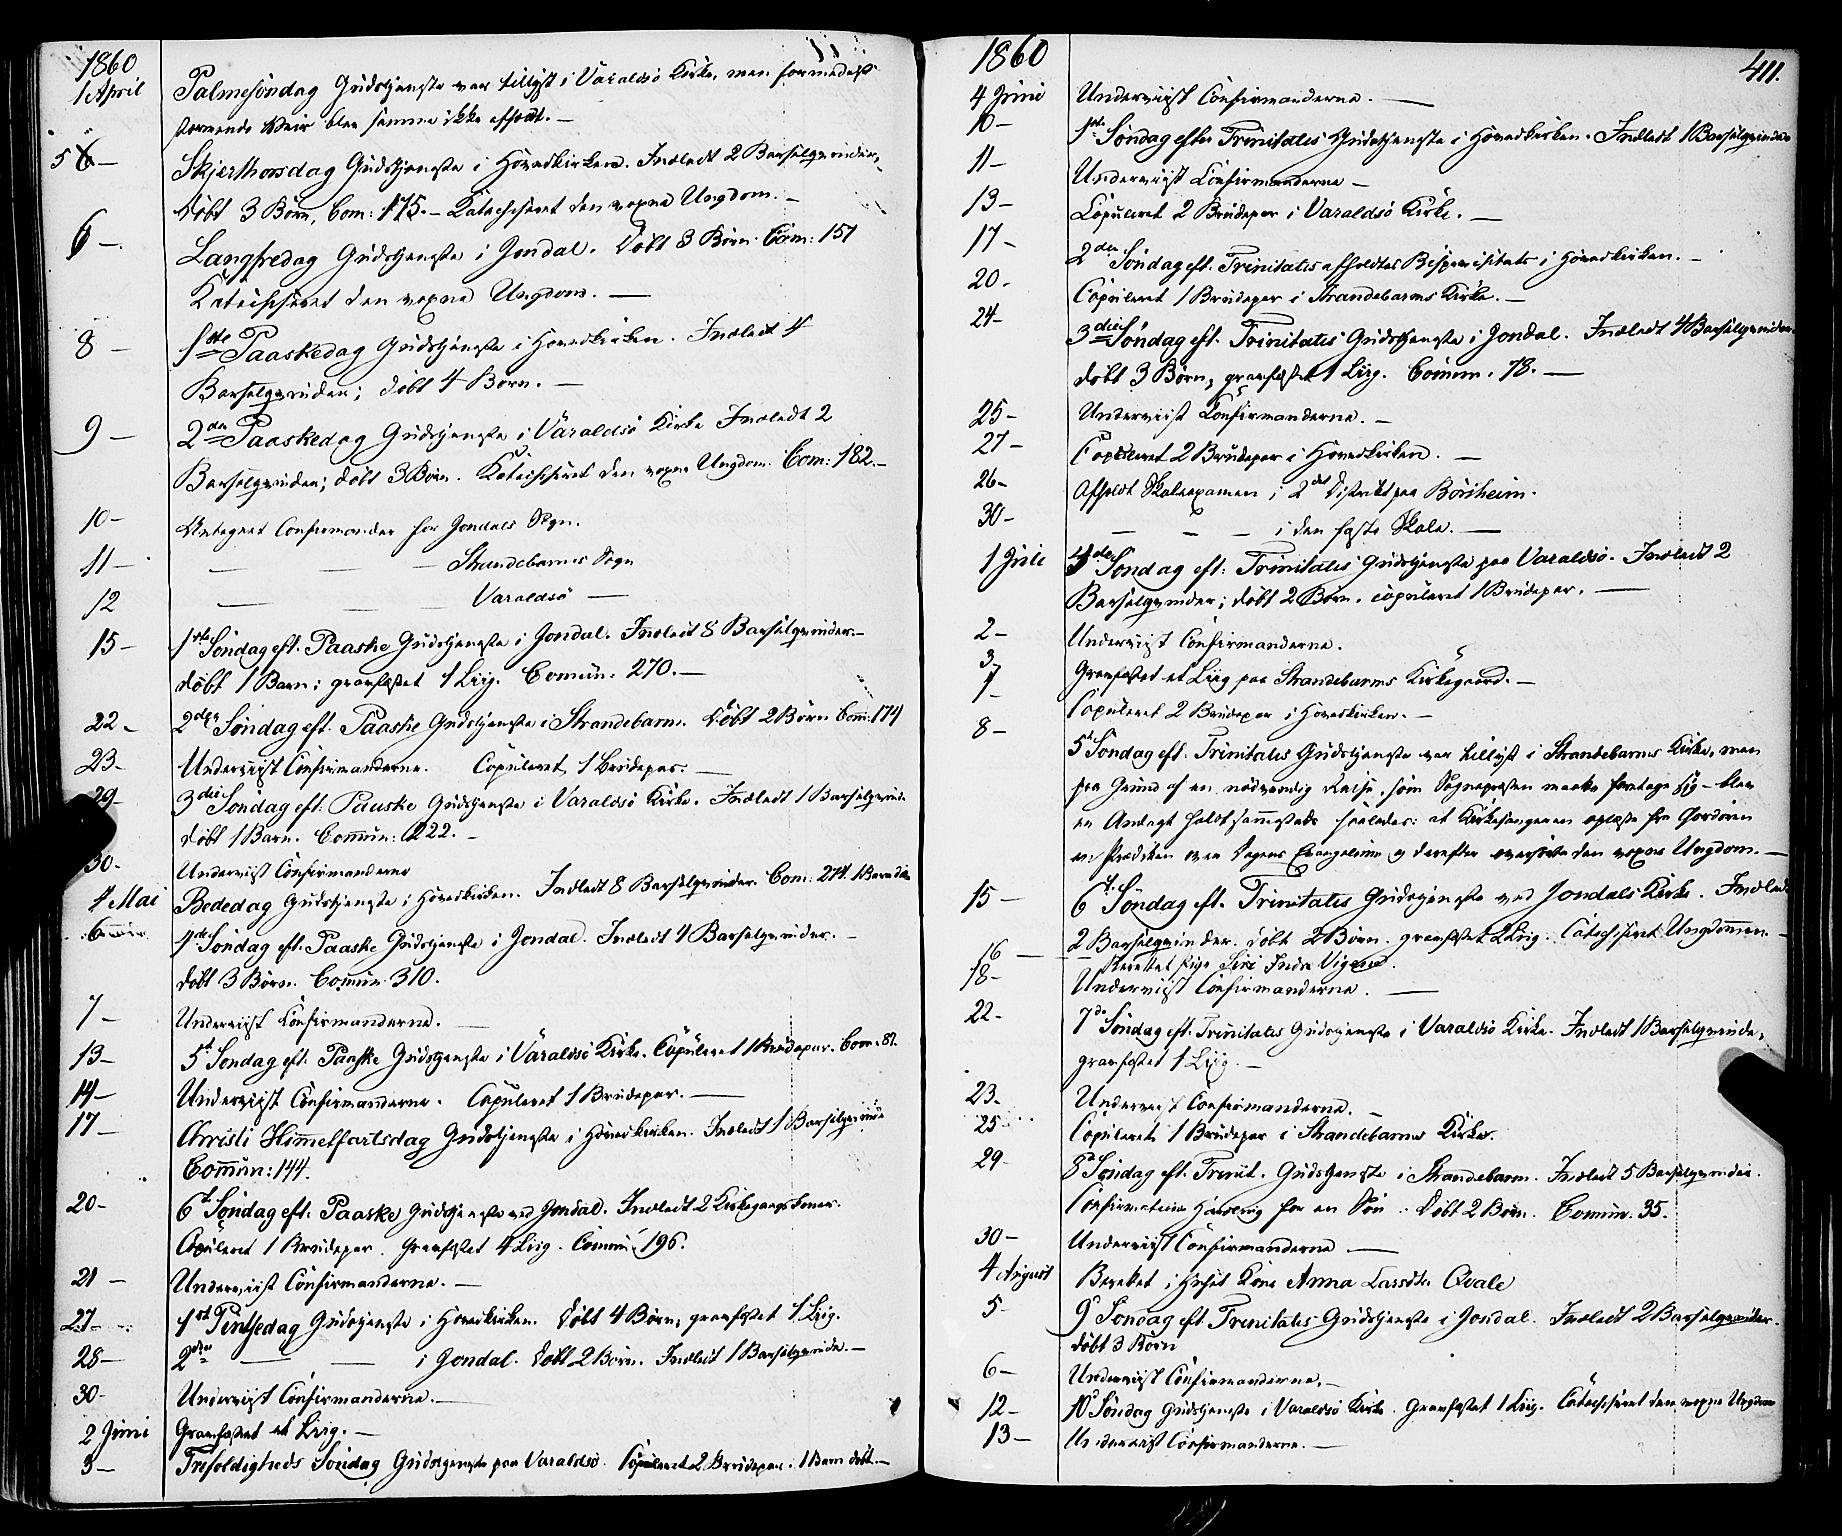 1860
1 April Palmesöndag Gudstjeneste var tillyst i Varaldsö Kirke, men formedelst
stormende Veir blev samme ikke afholdt. —
5 — Skjerthorsdag Gudstjeneste i Hovedkirken. Indledt 2 Barselqvinder,
döbt 3 Börn, Com: 175. — Katechiseret den voxne Ungdom. —
6 — Langfredag Gudstjeneste i Jondal. Döbt 3 Börn. Com: 151
Katechiseret den voxne Ungdom. —
8 — 1ste Paaskedag Gudstjeneste i Hovedkirken. Indledt 4
Barselqvinder; döbt 4 Börn. —
9 — 2den Paaskedag Gudstjeneste i Varaldsö Kirke Indledt 2
Barselqvinder; döbt 3 Börn. Katechiseret den voxne Ungdom. Com: 182. —
10 — Antegnet Confirmander for Jondals Sogn.
11 — — — — Strandebarms Sogn
12 — — Varaldsö —
15 — 1ste Söndag eft. Paaske Gudstjeneste i Jondal. Indledt 8 Barselqvinder. —
döbt 1 Barn; gravfæstet 1 Liig. Commun: 270. —
22 — 2den Söndag eft. Paaske Gudstjeneste i Strandebarm. Döbt 2 Börn Com: 174
23 — Underviist Confirmanderne. Copuleret 1 Brudepar. —
29 — 3die Söndag eft. Paaske Gudstjeneste i Varaldsö Kirke. Indledt 1 Barselqvinde
döbt 1 Barn. Commun: 222. —
30 — Underviist Confirmanderne
4 Mai Bededag Gudstjeneste i Hovedkirken. Indledt 8 Barselqvinder. Com: 274. 1 Barn döbt
6 — 4de Söndag eft. Paaske Gudstjeneste i Jondal. Indledt 4 Barselqvinder. —
döbt 3 Börn. Commun 310.
7 — Underviist Confirmanderne. —
13 — 5t Söndag eft. Paaske Gudstjeneste i Varaldsö Kirke. Copuleret 1 Brudepar. Com: 81.
14 — Underviist Confirmanderne. Copuleret 1 Brudepar. —
17 — Christi Himmelfartsdag Gudstjeneste i Hovedkirken. Indledt 1 Barselqvinde
Commun: 144.
20 — 6t Söndag eft. Paaske Gudstjeneste ved Jondal. Indledt 2 Kirkegangskoner.
Copuleret 1 Brudepar. Gravfæstet 4 Liig. Commun: 196.
21 — Underviist Confirmanderne. —
27 — 1st Pintsedag Gudstjeneste i Hovedkirken. Döbt 4 Börn, gravfæstet 1 Liig.
28 — 2den — — i Jondal. Döbt 2 Börn. Indledt 1 Barselqvinde. —
30 — Underviist Confirmanderne. —
2 Juni Gravfæstet et Liig. —
3 — Trefoldigheds Söndag Gudstjeneste paa Varaldsö. Copuleret 2 Brudepar. 1 Barn döbt. —
1860
411.
4 Juni Underviist Confirmanderne. —
10 — 1ste Söndag efter Trinitatis Gudstjeneste i Hovedkirken. Indledt 1 Barselqvinde
11 — Underviist Confirmanderne —
13 — Copuleret 2 Brudepar i Varaldsö Kirke. —
17 — 2den Söndag eft. Trinitatis afholdtes Bispevisitats i Hovedkirken. —
20 — Copuleret 1 Brudepar i Strandebarms Kirke. —
24 — 3die Söndag eft. Trinitatis Gudstjeneste i Jondal. Indledt 4 Barselqvinder
döbt 3 Börn, gravfæstet 1 Liig. Commun. 78. —
25 — Underviist Confirmanderne. —
27 — Copuleret 2 Brudepar i Hovedkirken. —
26 — Afholdt Skoleexamen i 2det Distrikt paa Börsheim.
30 — — — — i den faste Skole. —
1 Juli 4de Söndag eft. Trinitatis Gudstjeneste paa Varaldsö. Indledt 2
Barselqvinder; döbt 2 Börn. copuleret 1 Brudepar. —
2 — Underviist Confirmanderne.
3 Gravfæstet et Liig paa Strandebarms Kirkegaard. —
7 — Copuleret 2 Brudepar i Hovedkirken. —
8 — 5t Söndag eft. Trinitatis Gudstjeneste var tillyst i Strandebarms Kirke, men
paa Grund af en nödvendig Reise, som Sognepresten maatte foretage sig — blev
en Andagt holdt sammesteds saaledes: at Kirkesangeren oplæste fra Chordören
en Prædiken over Dagens Evangelium og derefter overhörte den voxne Ungdom. —
15 — 6t Söndag eft. Trinitatis Gudstjeneste ved Jondals Kirke. Indledt
2 Barselqvinder. döbt 2 Börn. gravfæstet 2 Liig. Catechiseret Ungdommen. —
16 — — Berettet Pige Siri Indre Vigene.
18 — Underviist Confirmanderne. —
22 — 7de Söndag eft. Trinitatis Gudstjeneste i Varaldsö Kirke. Indledt 1 Barselqvinde,
gravfæstet 1 Liig. —
23 — Underviist Confirmanderne. —
25 Copuleret 1 Brudepar i Strandebarms Kirke.
29 — 8de Söndag eft. Trinit. Gudstjeneste i Strandebarm. Indledt 5 Barselqvinder.
Confirmations Handling for en Sön. Döbt 2 Börn. Commun. 35.
30 — Underviist Confirmanderne —
4 August Berettet i Huset Kone Anna Larsdtr Qvale
5 — 9de Söndag eft Trinitatis Gudstjeneste i Jondal. Indledt 2 Barselqvinder.
döbt 3 Börn
6 — Underviist Confirmanderne. —
12 — 10d Söndag Gudstjeneste i Varaldsö Kirke. Gravfæstet 1 Liig. Catechiseret den voxne Ungdom
13 — Underviist Confirmanderne. —